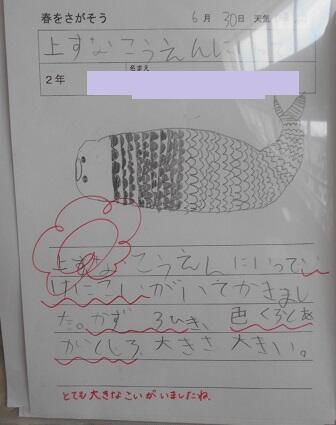 春をさがそう 6月30日 天気
上すなこうえんに
2年 名まえ
上すなこうえんにいってい
けにこいがいてかきまし
た。かず ろひき、色 くろとあ
かとしろ、大きさ 大きい。
とても大きなこいがいましたね。